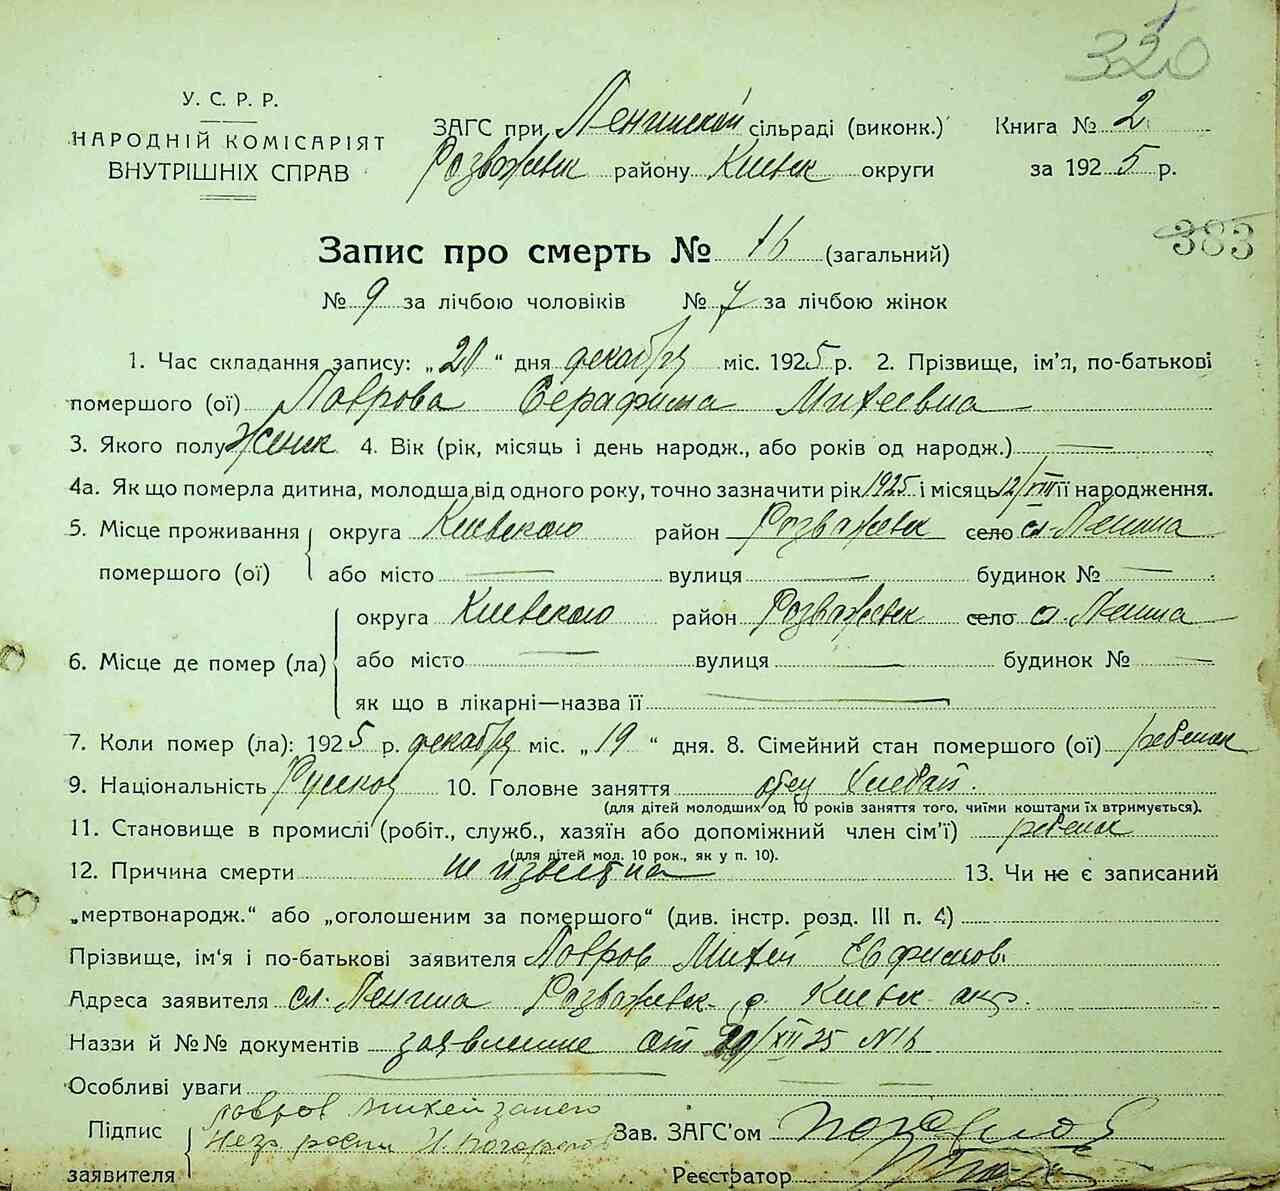 320
У. С. Р. Р.
НАРОДНІЙ КОМІСАРІЯТ
ВНУТРІШНІХ СПРАВ
ЗАГС при Ленинской сільраді (виконк.) Книга № 2
Розважевск району Киевск округи за 1925 р.
383
Запис про смерть № 16 (загальний)
№ 9 за лічбою чоловіків № 7 за лічбою жінок
1. Час складання запису: „20“ дня декабря міс. 1925 р. 2. Прізвище, ім'я, по-батькові
помершого (ої) Лаврова Серафима Михеевна
3. Якого полу Женск 4. Вік (рік, місяць і день народж., або років од народж.) —
4а. Як що померла дитина, молодша від одного року, точно зазначити рік 1925 і місяць 12/VIII її народження.
5. Місце проживання помершого (ої) округа Киевского район Розважевск село сл. Ленина
або місто — вулиця — будинок № —
6. Місце де помер (ла) округа Киевского район Розважевск село сл. Ленина
або місто — вулиця — будинок № —
як що в лікарні—назва її —
7. Коли помер (ла): 1925 р. декабря міс. „19“ дня. 8. Сімейний стан помершого (ої) ребенок
9. Національність Русская 10. Головне заняття отец
(для дітей молодших од 10 років заняття того, чиїми коштами їх втримується).
11. Становище в промислі (робіт., служб., хазяїн або допоміжний член сім'ї) ребенок
(для дітей мол. 10 рок., як у п. 10).
12. Причина смерти не известна 13. Чи не є записаний
„мертвонародж.“ або „оголошеним за помершого“ (див. інстр. розд. III п. 4)
Прізвище, ім'я і по-батькові заявителя Лавров Михей Ефимов.
Адреса заявителя сл. Ленина Розважевск р. Киевск окр.
Наззи й №№ документів заявление от 20/XII 25 N 16
Особливі уваги —
Підпис заявителя Лавров Михей за него
Зав. ЗАГС'ом
Реєстратор